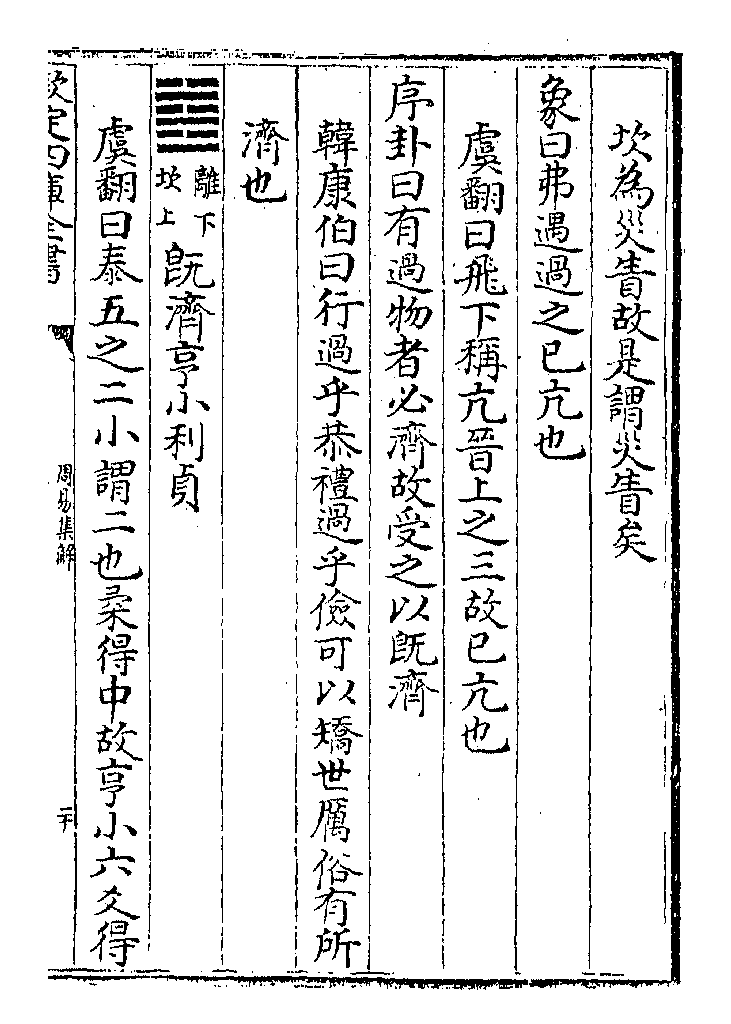 坎為災眚故是謂災眚矣
象曰弗遇過之已亢也
虞翻曰飛下稱亢晉上之三故已亢也
序卦曰有過物者必濟故受之以既濟
韓康伯曰行過乎恭禮過乎儉可以矯世厲俗有所
濟也
離下
坎上
既濟亨小利貞
虞翻曰泰五之二小謂二也柔得中故亨小六爻得
欽定四庫全書
周易集解
二十